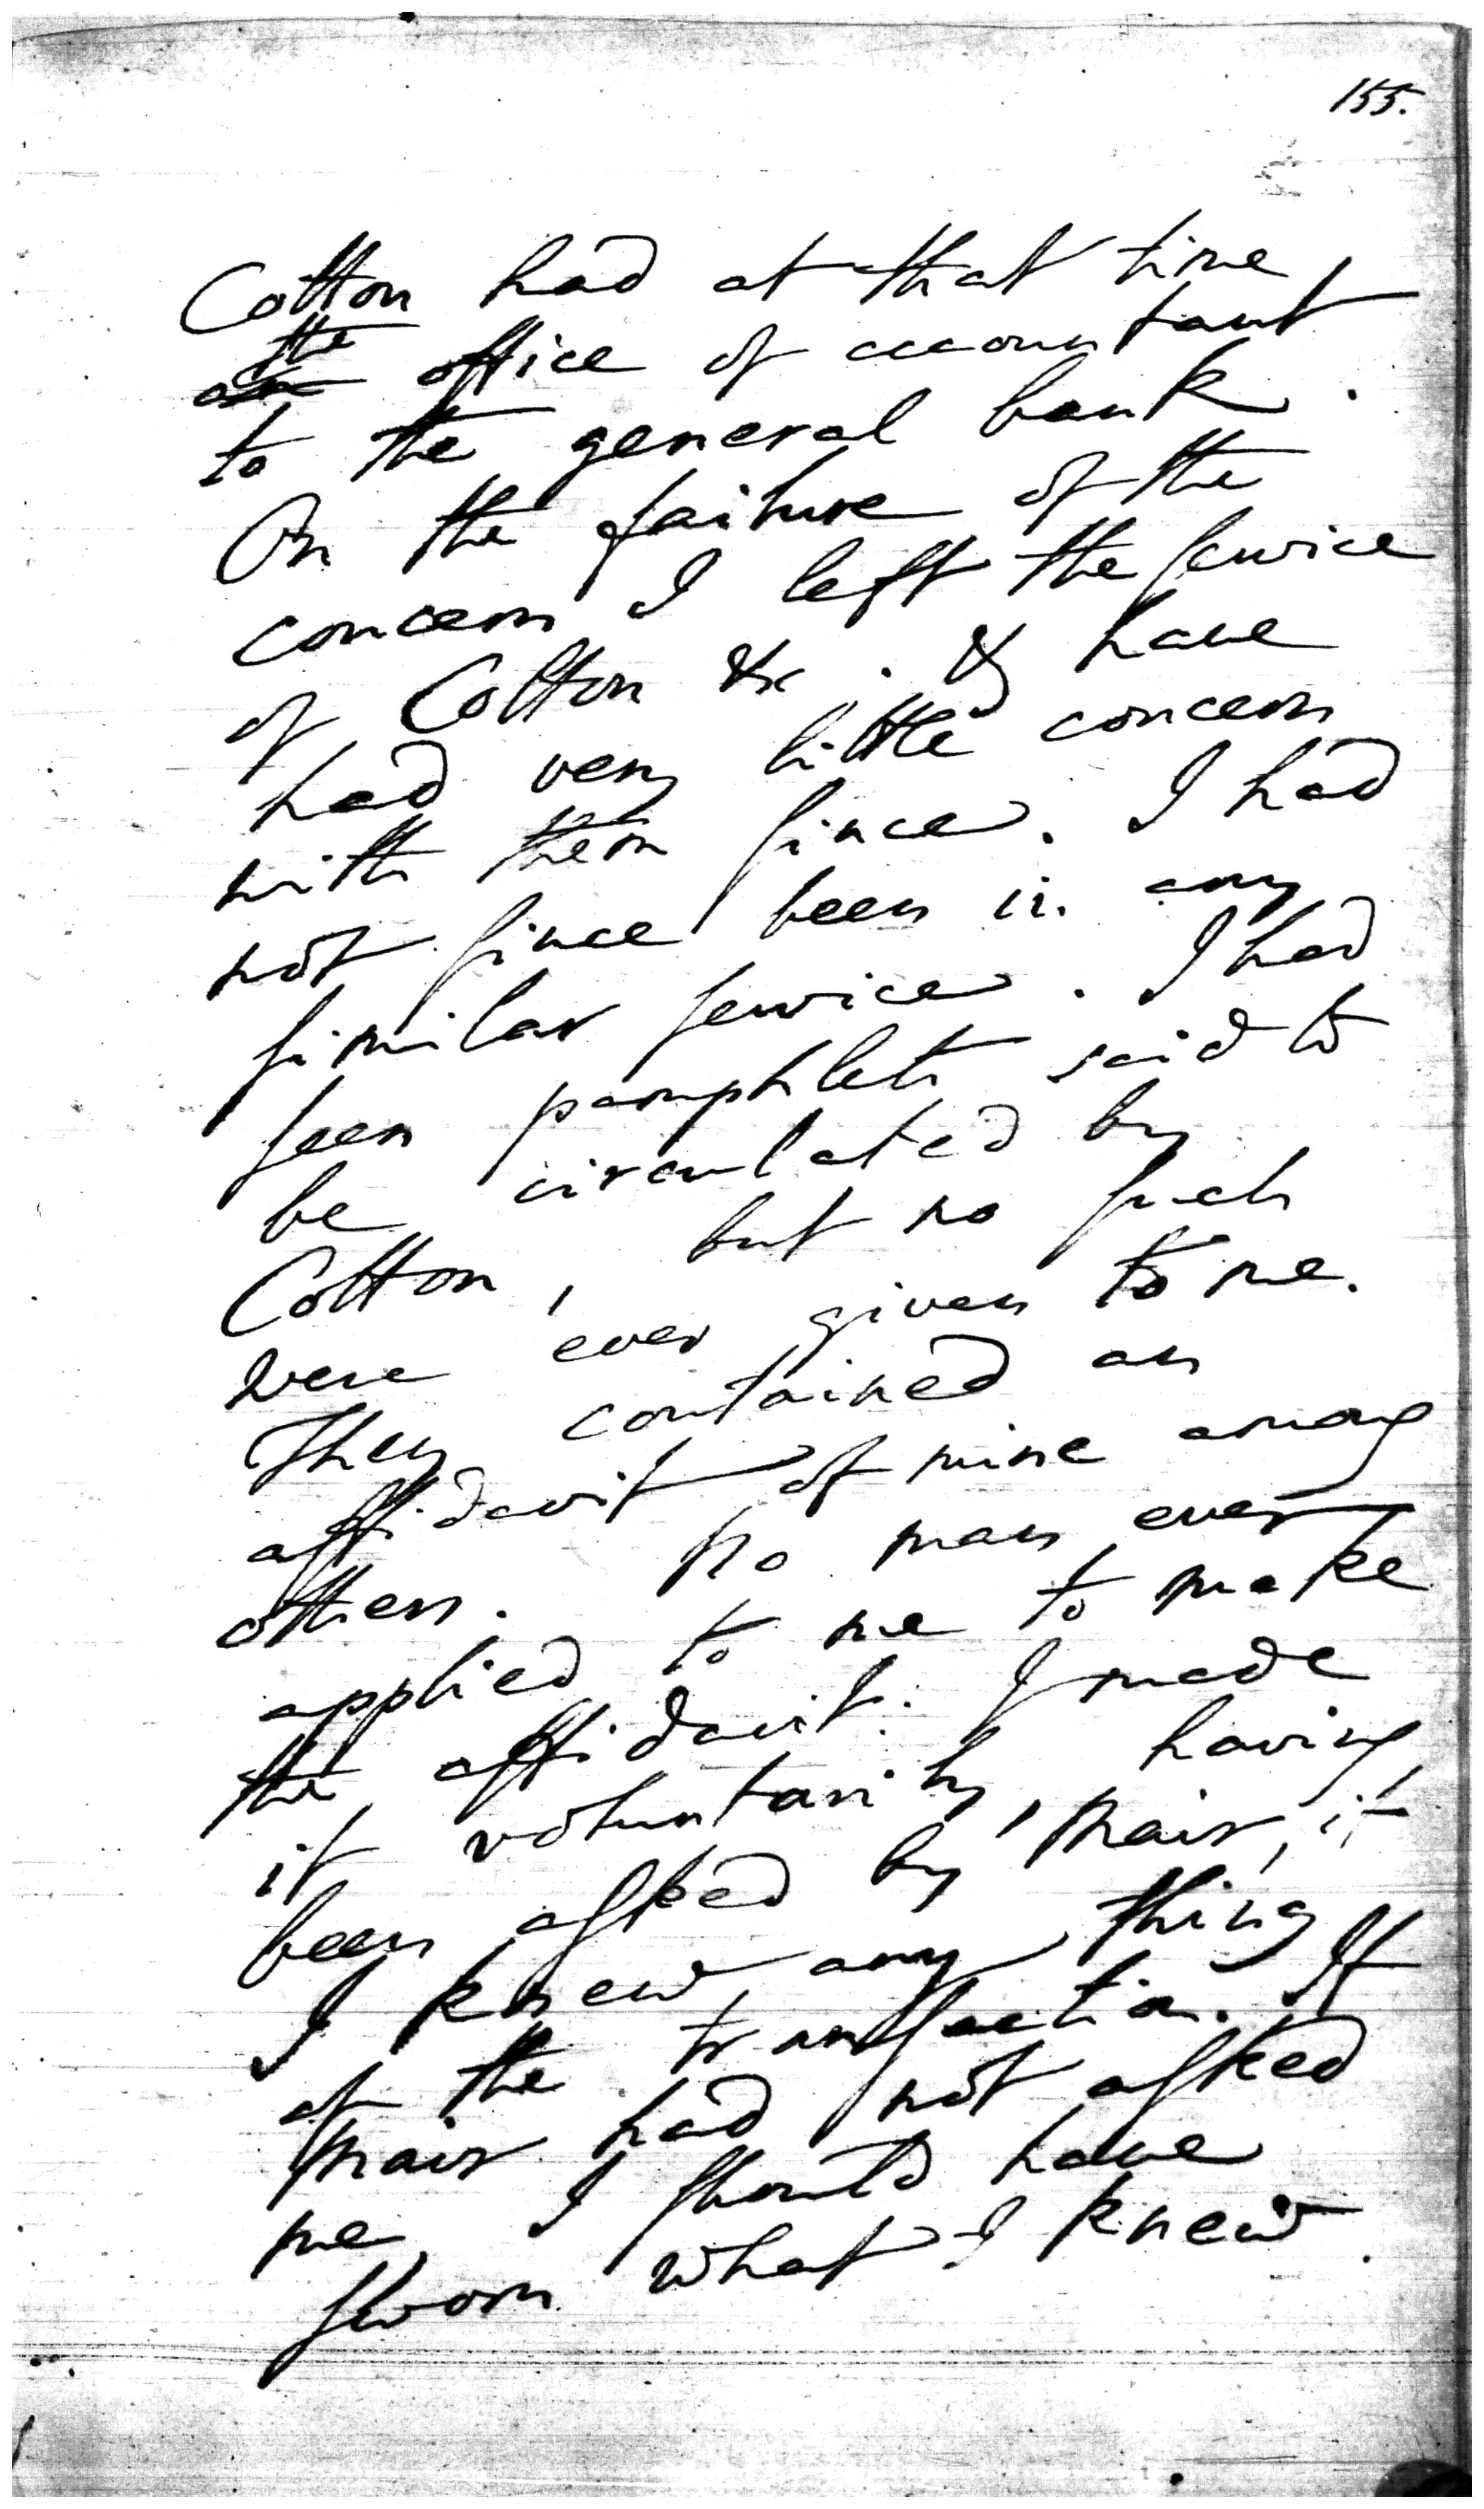 155.
Cotton had at that time
the
an office of accountant
to the general bank.
On the failure of the
concern I left the service
of Cotton &c. & have
had very little concern
with them since. I had
not since been in any
similar service. I had
seen pamphlets said to
be circulated by
Cotton, but no such
were ever given to me.
They contained an
affidavit of mine among
others. No man ever
applied to me to make
the affidavit. I made
it voluntarily, having
been asked by Mair, if
I knew any thing
of the transaction. If
Mair had not asked
me, I should have
sworn what I knew.